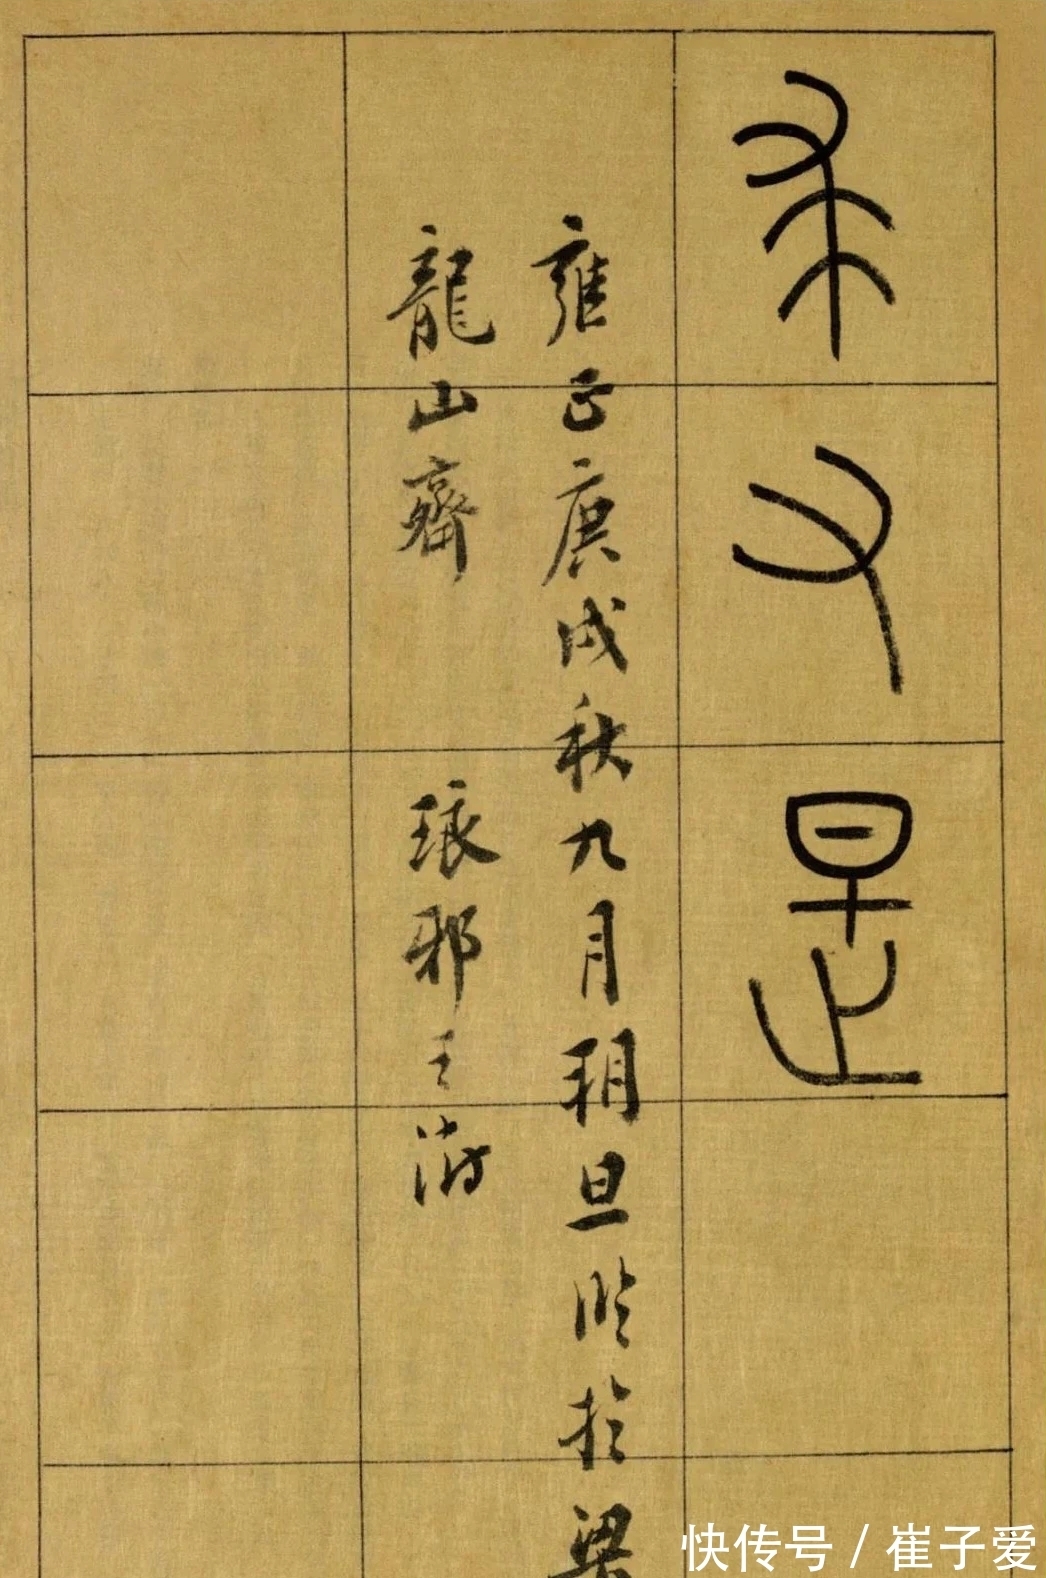 求又是
雍正庚戌秋九月朔旦臨於梁
龍山齋 琅邪王澍
快传号 / 崔子爱